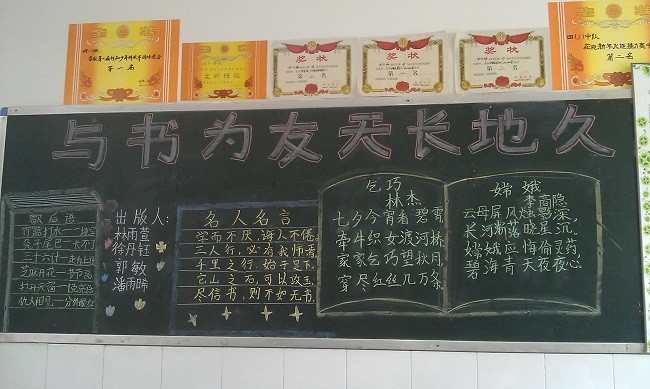 第一名
奖状
奖状
奖状
第二名
与书为友天长地久
歇后语
竹篮打水一场空
兔子尾巴一长不了
三十六计一走为上计
芝麻开花一节节高
仇人相见一分外眼红
出版人:
林雨萱
徐丹钰
郭敏
潘雨晞
名人名言
学而不厌,诲人不倦。
三人行,必有我师焉。
千里之行,始于足下。
它山之石,可以攻玉。
尽信书,则不如无书。
乞巧
林杰
七夕今宵看碧霄
牵牛织女渡河桥
家家乞巧望秋月
穿尽红丝几万条
嫦娥
李商隐
云母屏风烛影深,
长河渐落晓星沉。
嫦娥应悔偷灵药,
碧海青天夜夜心。